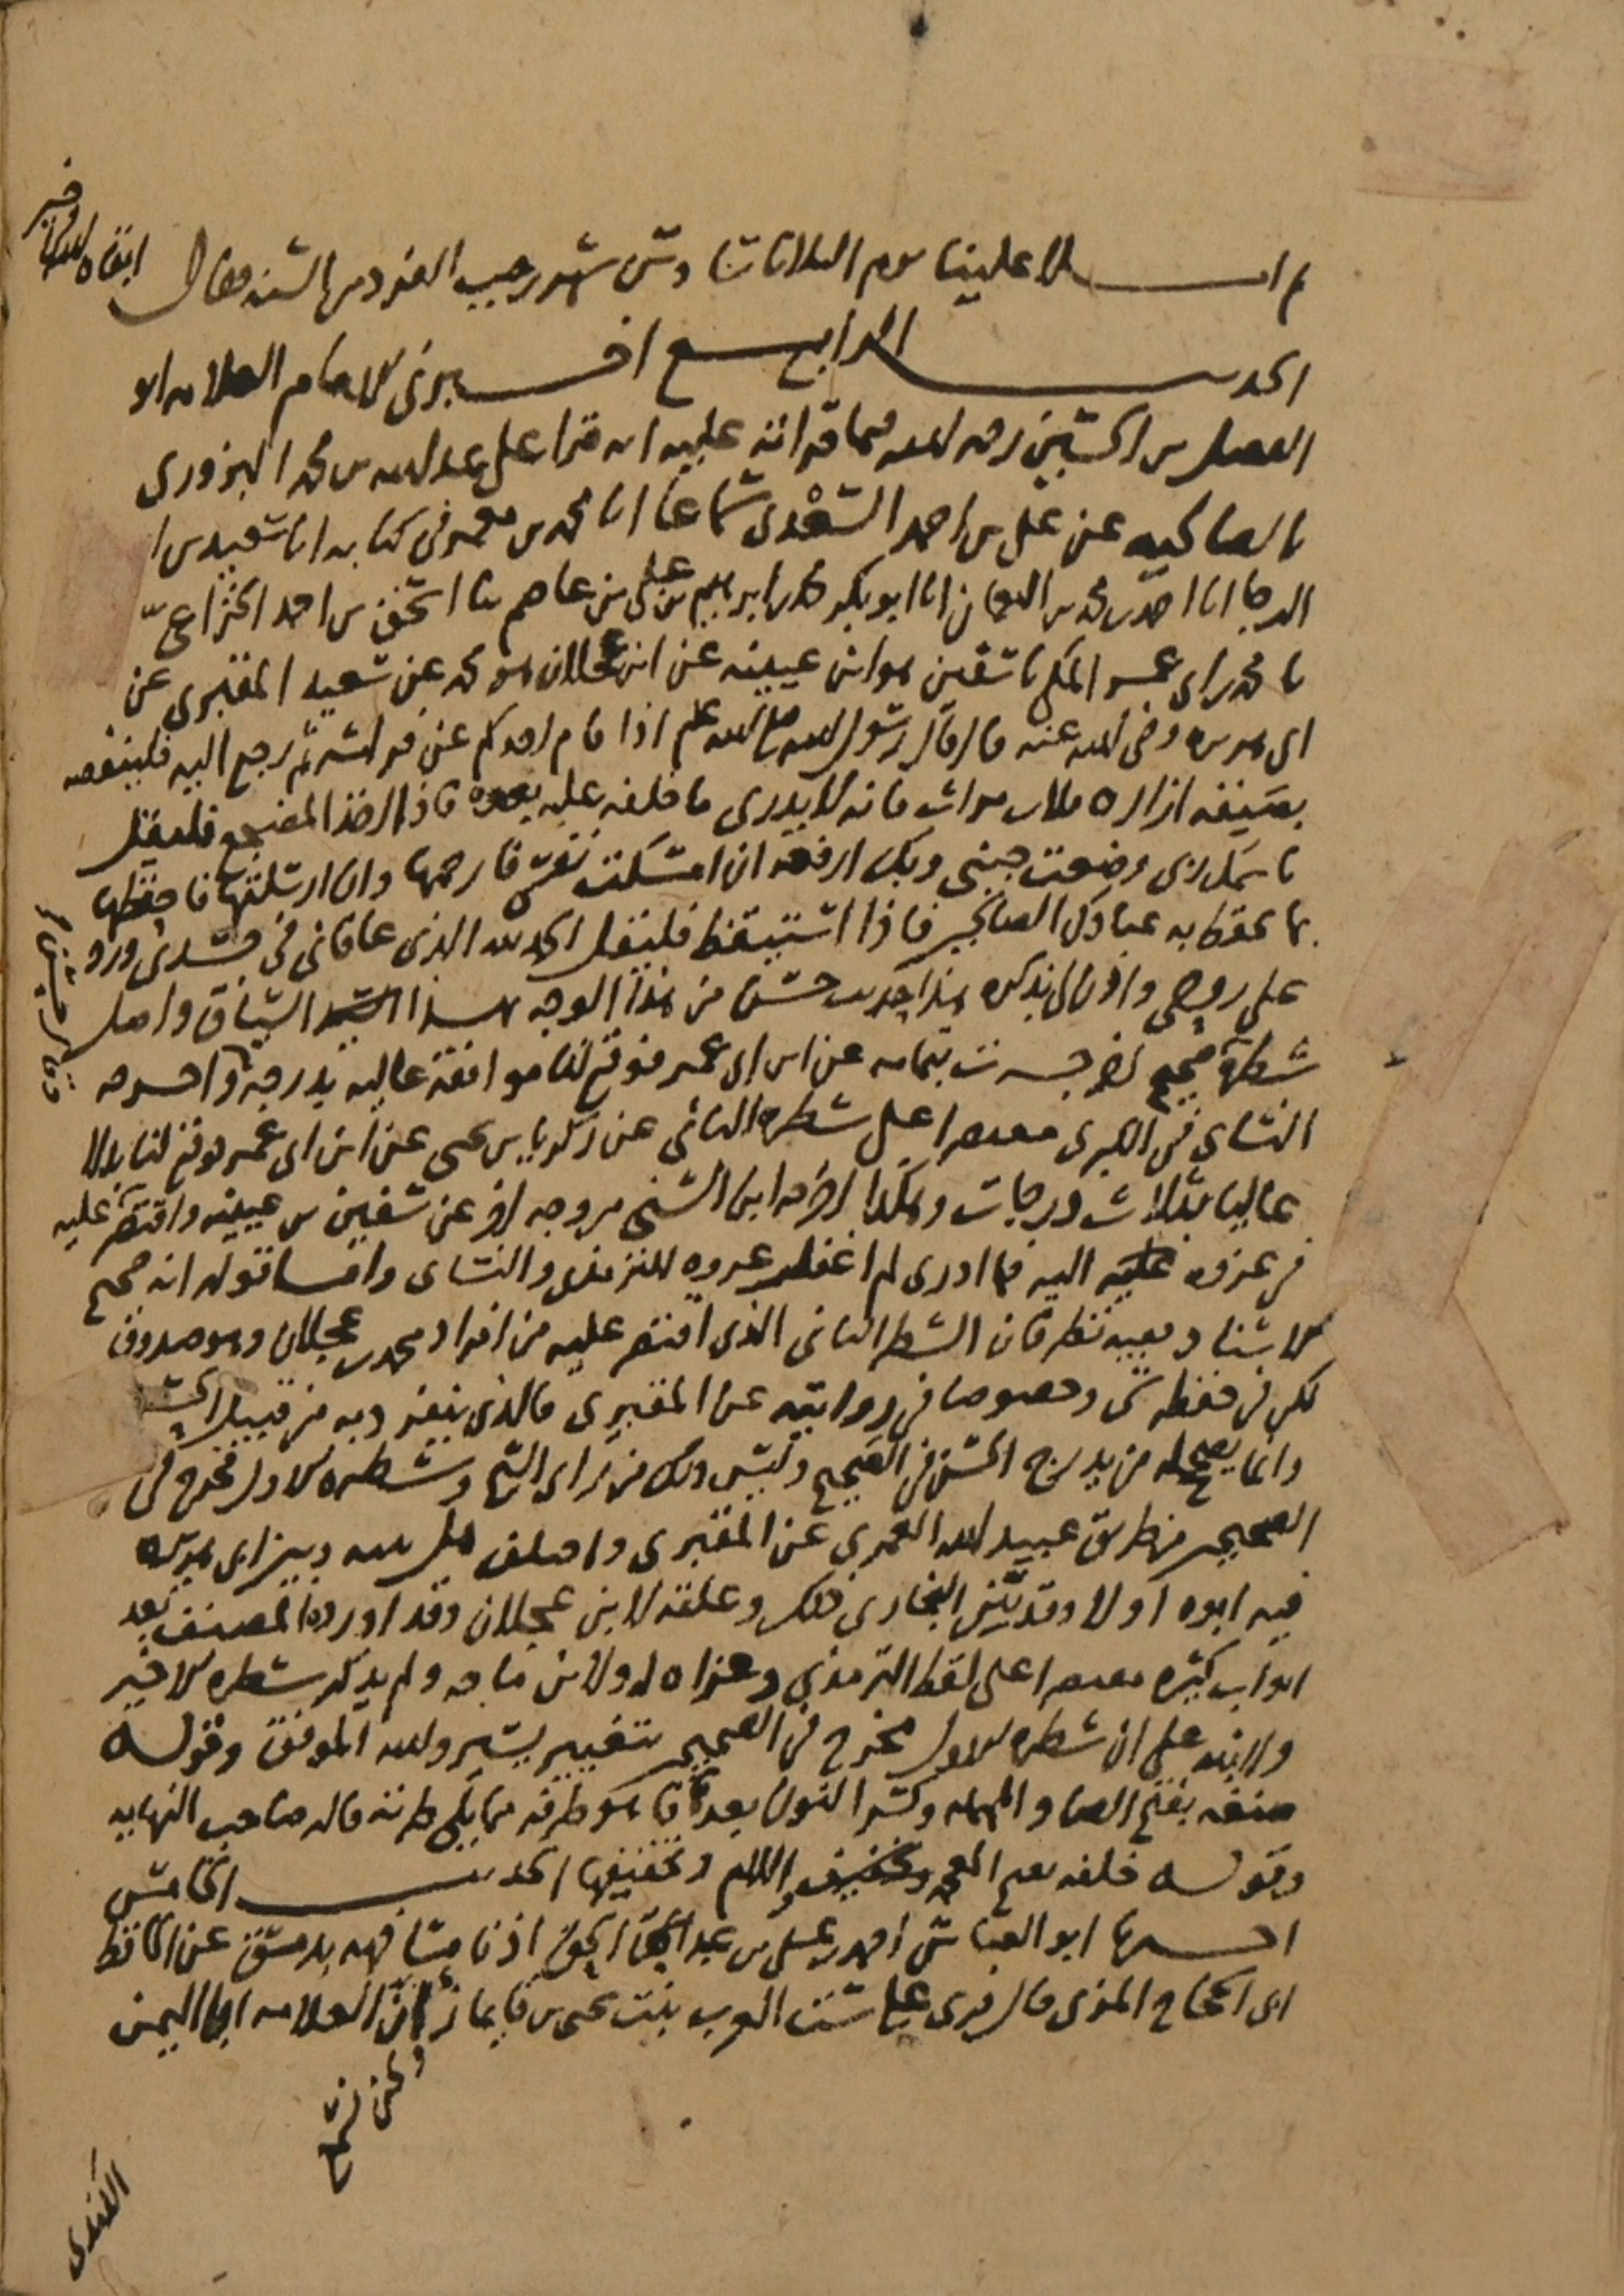 ثم املا علينا يوم الثلاثاء سادس شهر رجب الفرد من السنة فقال ابقاه الله تعالى في خير
الحديث الرابع اخبرني الامام العلامة ابو
الفضل بن الحسين رحمه الله فيما قراته عليه انه قرا على عبد الله بن محمد البزوري
بالصالحيه عن علي بن احمد السعدي سماعا انا محمد بن معمر في كتابه انا سعيد بن ابي
الرجا انا احمد بن محمد بن النعمان انا ابو بكر محمد بن ابرهيم بن علي بن عاصم ثنا اسحق بن احمد الخزاعي
نا محمد بن ابي عمر المكي نا سفين هو ابن عيينه عن ابن عجلان هو محمد عن سعيد المقبري عن
ابي هريره رضي الله عنه قال قال رسول الله صلى الله عليه وسلم اذا قام احدكم عن فراشه ثم رجع اليه فلينفضه
بصنفه ازاره ثلاث مرات فانه لا يدري ما خلفه عليه بعده فاذا اضطجع فليقل
باسمك ربي وضعت جنبي وبك ارفعه ان امسكت نفسي فارحمها وان ارسلتها فاحفظها
بما تحفظ به عبادك الصالحين فاذا استيقظ فليقل الحمد لله الذي عافاني في جسدي ورد
علي روحي واذن لي بذكره هذا حديث حسن من هذا الوجه بهذا السياق واصل
شطره صحيح اخرجه ت بتمامه عن ابن ابي عمر فوقع لنا موافقة عاليه بدرجة واخرجه
النساي في الكبرى مقتصرا على شطره الثاني عن زكريا بن يحيى عن ابن ابي عمر فوقع لنا بدلا
عاليا بثلاث درجات وهكذا اخرجه ابن السني من وجه اخر عن سفين بن عيينه واقتصر عليه
في عزوه اليه فما ادري لم اغفل عزوه للترمذي والنساي واما قوله انه صحيح
الاسناد ففيه نظر فان الشطر الثاني الذي اقتصر عليه من افراد محمد بن عجلان وهو صدوق
لكن في حفظه شي وخصوصا في روايته عن المقبري فالذي ينفرد به من قبيل الحسن
وانما يصححه من يدرج الحسن في الصحيح وليس ذلك من راي الشيخ وشطره الاول مخرج في
الصحيحين من طريق عبيد الله العمري عن المقبري واختلف هل بينه وبين ابي هريره
فيه ابوه او لا وقد بين البخاري ذلك وعلقه لابن عجلان وقد اورده المصنف بعد
ابواب كثيره مقتصرا على لفظ الترمذي وعزاه له ولابن ماجه ولم يذكر شطره الاخير
ولا نبه على ان شطره الاول مخرج في الصحيحين بتغيير يسير والله الموفق وقوله
صنفه بفتح الصاد المهمله وكسر النون بعدها فا هو طرفه مما يلي طرته قاله صاحب النهايه
وقوله خلفه بفتح المعجمه واللام وتخفيفها الحديث الخامس
اخبرنا ابو العباس احمد بن علي بن عبد الحق اذنا مشافهه بدمشق عن الحافظ
ابي الحجاج المزي قال قرئ على ست العرب بنت يحيى بن قايماز ان العلامه ابا اليمن
ونحن نسمع
الكندي